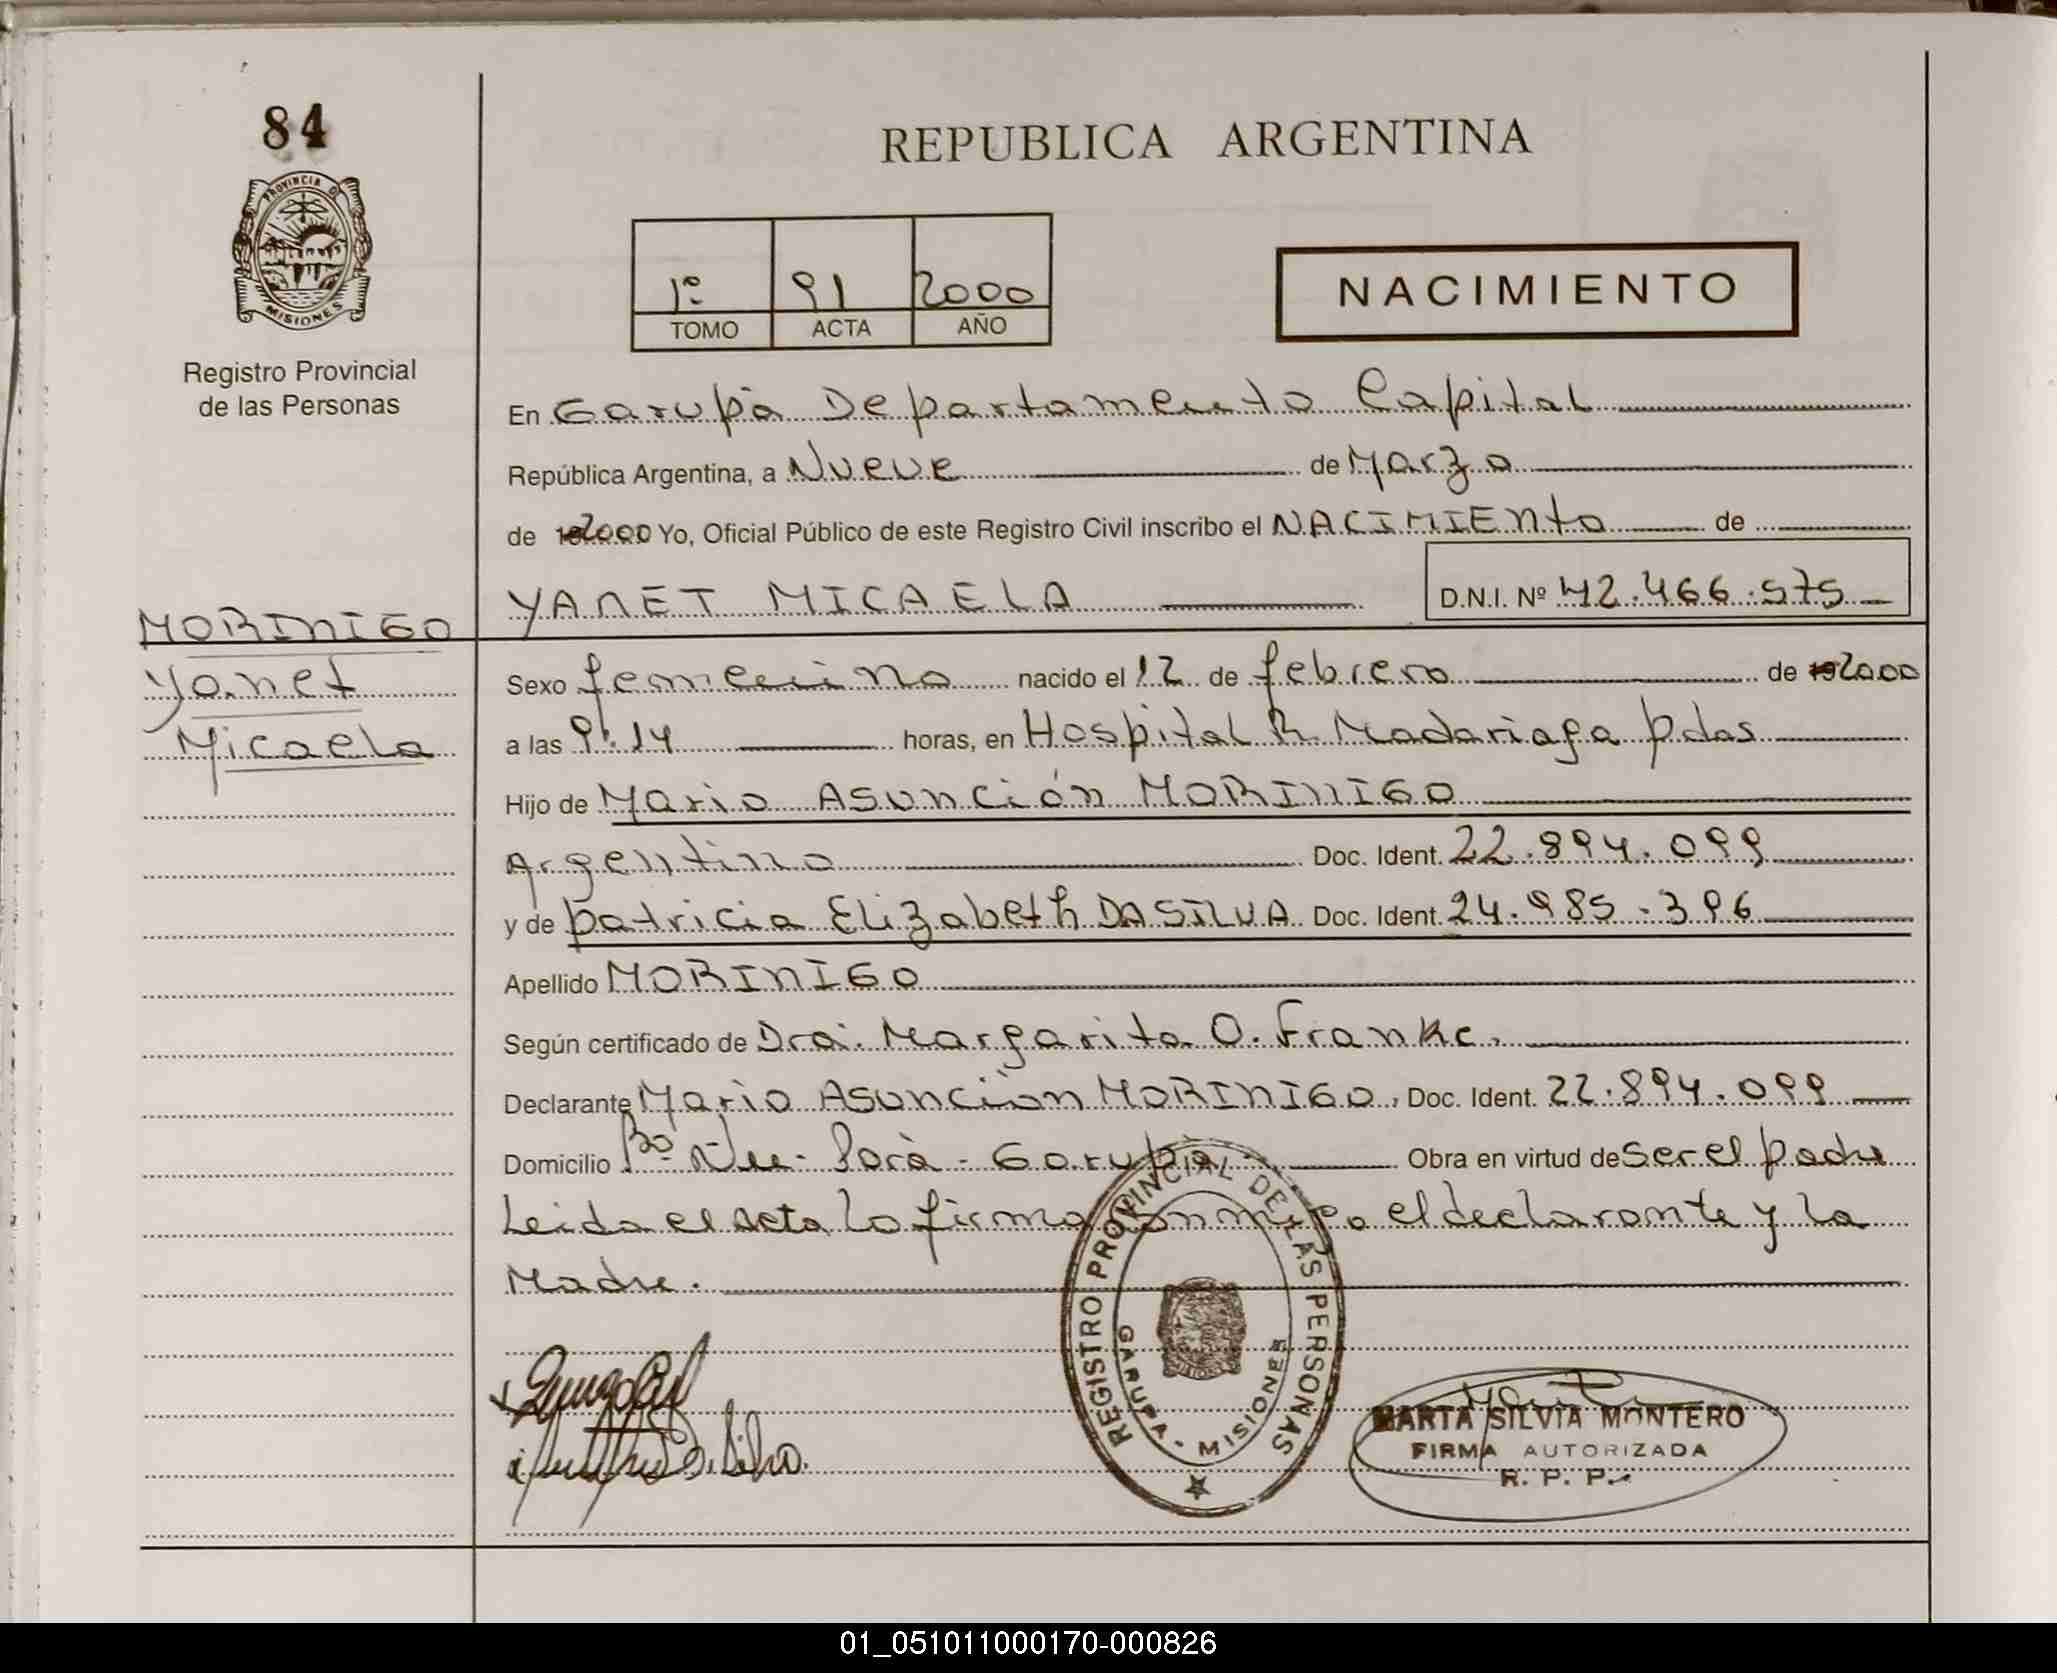 84
PROVINCIA D
MISIONES
Registro Provincial
de las Personas
REPUBLICA ARGENTINA
1º 91 2000
TOMO ACTA AÑO
NACIMIENTO
En Garupá Departamento Capital
República Argentina, a Nueve de Marzo
de 2000 Yo, Oficial Público de este Registro Civil inscribo el NACIMIENTO de
YANET MICAELA D.N.I. Nº 42.466.575
MORINIGO
Yanet
Micaela
Sexo femenino nacido el 12 de febrero de 2000
a las 9:14 horas, en Hospital R. Madariaga Pdas
Hijo de Mario Asunción MORINIGO
Argentino Doc. Ident. 22.894.099
y de Patricia Elizabeth DA SILVA Doc. Ident. 24.985.396
Apellido MORINIGO
Según certificado de Dra. Margarita O. Franke.
Declarante Mario Asunción MORINIGO, Doc. Ident. 22.894.099
Domicilio Bº Ñu - Porá - Garupá Obra en virtud de ser el padre
Leida el acta lo firma conmigo el declarante y la
Madre.
REGISTRO PROVINCIAL DE LAS PERSONAS
GARUPA - MISIONES
MARTA SILVIA MONTERO
FIRMA AUTORIZADA
R. P. P.
01_051011000170-000826